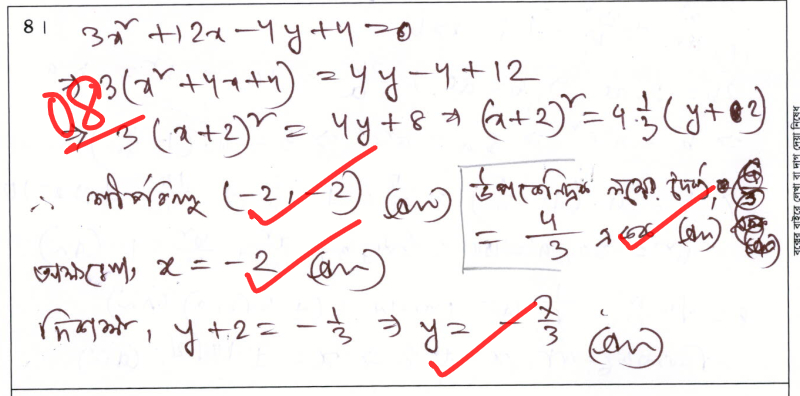 8।
3x² + 12x - 4y + 4 = 0
⇒ 3(x² + 4x + 4) = 4y - 4 + 12
08
⇒ 3(x+2)² = 4y + 8 ⇒ (x+2)² = 4·1/3(y+2)
∴ শীর্ষবিন্দু (-2, -2) (Ans)
উপকেন্দ্রিক লম্বের দৈর্ঘ্য
= 4/3 একক (Ans)
অক্ষরেখা, x = -2 (Ans)
দিকাক্ষ, y + 2 = -1/3 ⇒ y = -7/3 (Ans)
বক্সের বাইরে লেখা বা দাগ দেয়া নিষেধ